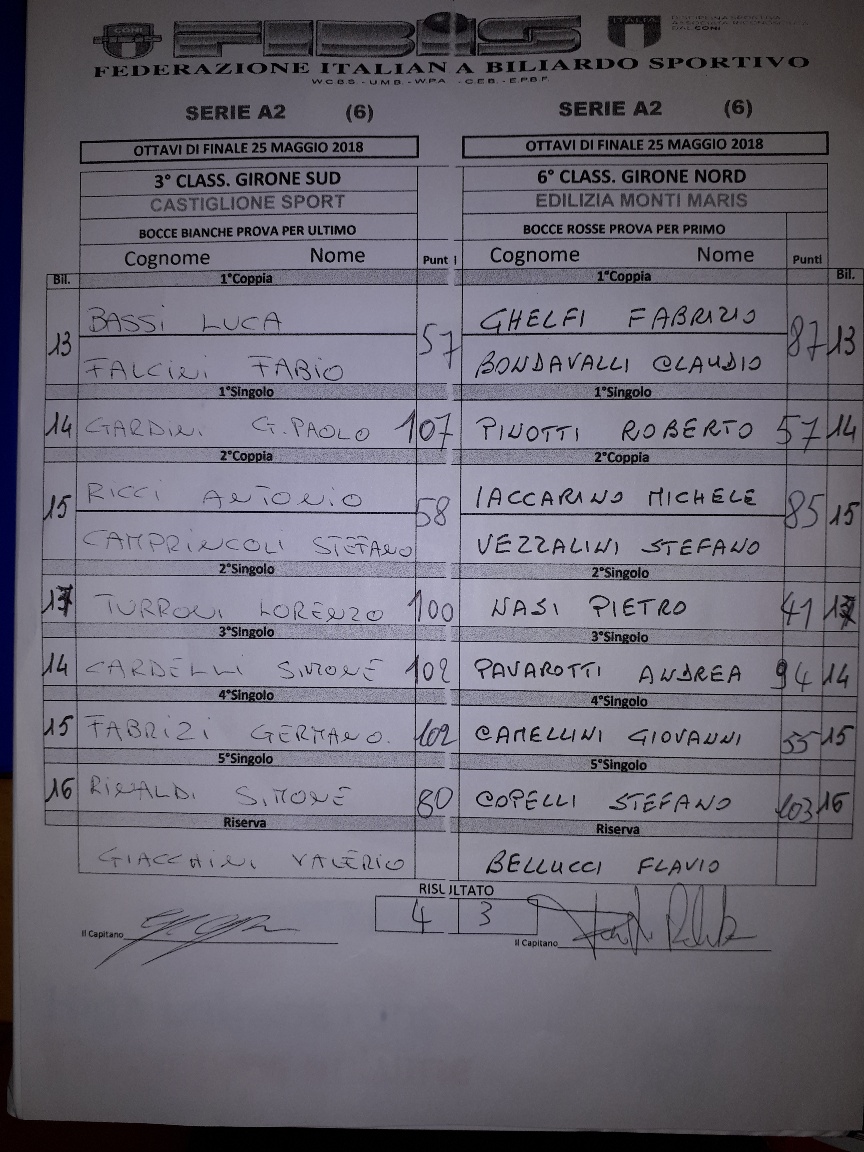 CONI FIBIS ITALIA DISCIPLINA SPORTIVA ASSOCIATA RICONOSCIUTA DAL CONI
FEDERAZIONE ITALIANA BILIARDO SPORTIVO
W.C.B.S. - U.M.B. - W.P.A. - C.E.B. - E.P.B.F.
SERIE A2 (6) SERIE A2 (6)
OTTAVI DI FINALE 25 MAGGIO 2018 OTTAVI DI FINALE 25 MAGGIO 2018
3° CLASS. GIRONE SUD 6° CLASS. GIRONE NORD
CASTIGLIONE SPORT EDILIZIA MONTI MARIS
BOCCE BIANCHE PROVA PER ULTIMO BOCCE ROSSE PROVA PER PRIMO
Cognome Nome Punti Cognome Nome Punti
Bil. 1°Coppia 1°Coppia Bil.
BASSI LUCA GHELFI FABRIZIO
13 57 87 13
FALCINI FABIO BONDAVALLI CLAUDIO
1°Singolo 1°Singolo
14 GARDINI G.PAOLO 107 PINOTTI ROBERTO 57 14
2°Coppia 2°Coppia
RICCI ANTONIO IACCARINO MICHELE
15 58 85 15
CAMPRINCOLI STEFANO VEZZALINI STEFANO
2°Singolo 2°Singolo
13 TURRONI LORENZO 100 NASI PIETRO 41 13
3°Singolo 3°Singolo
14 CARDELLI SIMONE 102 PAVAROTTI ANDREA 94 14
4°Singolo 4°Singolo
15 FABRIZI GERMANO. 102 CAMELLINI GIOVANNI 55 15
5°Singolo 5°Singolo
16 RINALDI SIMONE 80 COPELLI STEFANO 103 16
Riserva Riserva
GIACCHINI VALERIO BELLUCCI FLAVIO
RISULTATO
4 3
Il Capitano Il Capitano